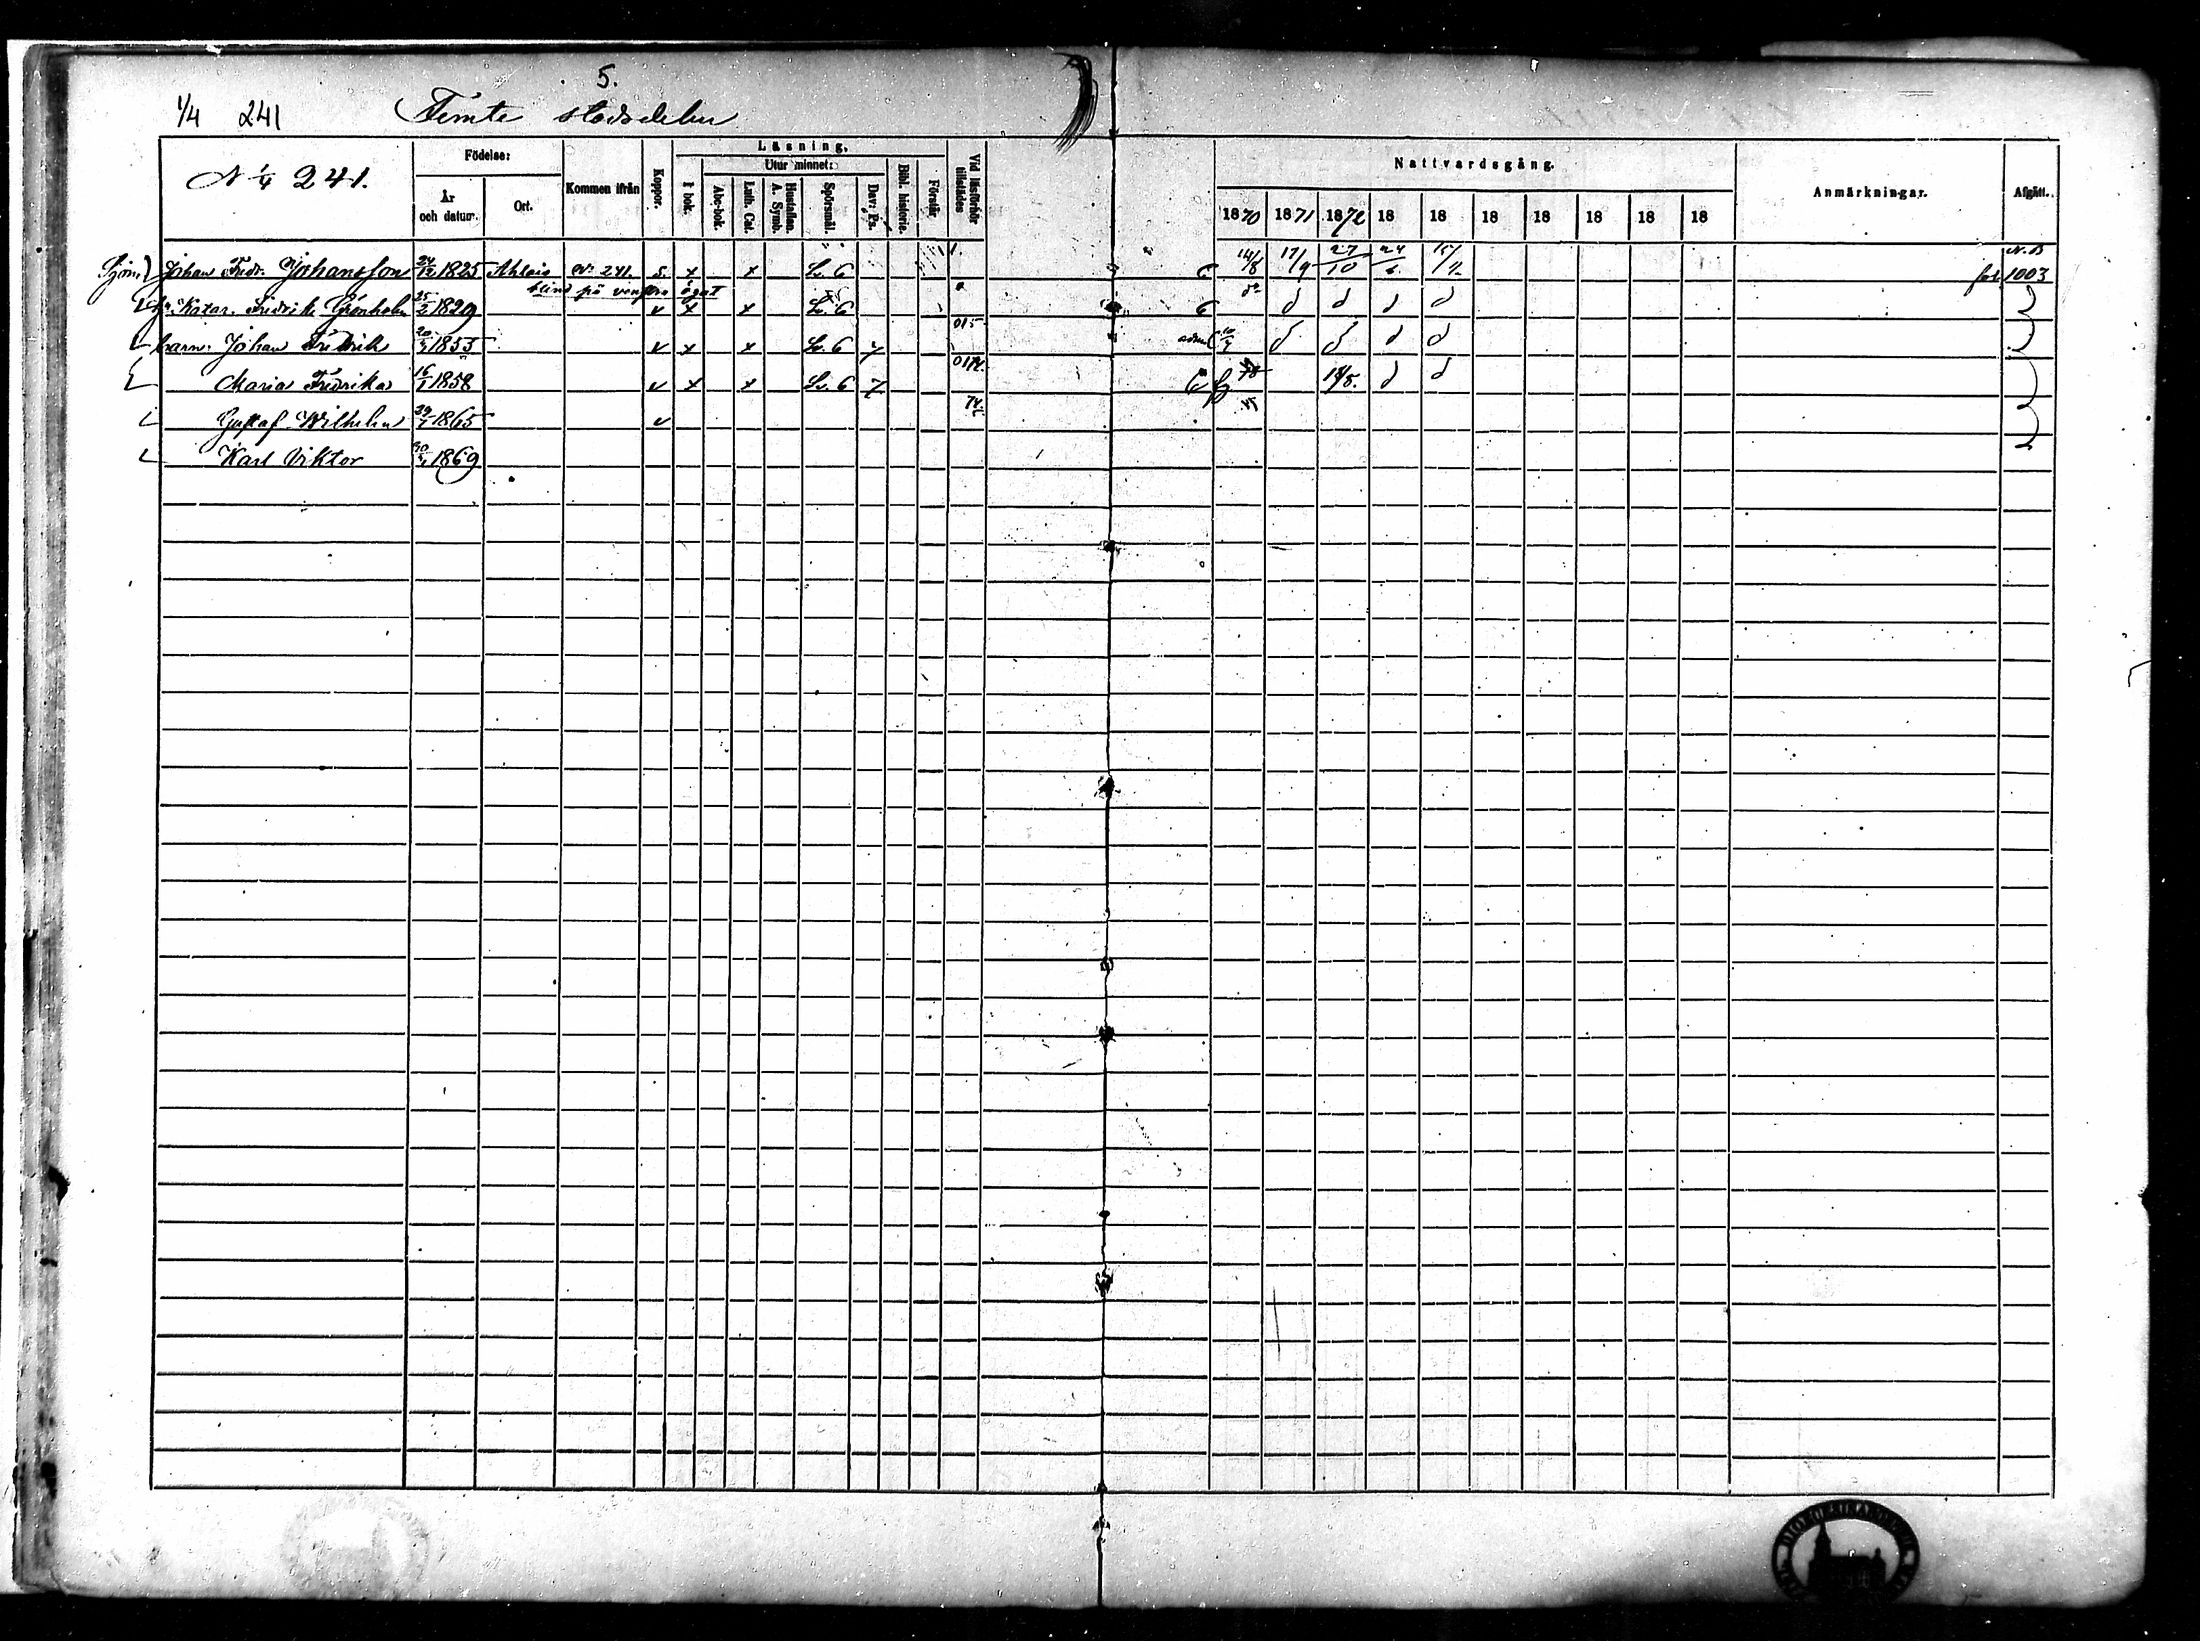 5.
1/4 241 Femte stadsdelen
N 1/4 241.
Födelse:
År och datum.
Ort.
Kommen ifrån
Koppor.
Läsning.
I bok.
Utur minnet:
Abc-bok.
Luth. Cat.
Hustaflan. A. Symb.
Spörsmål.
Dav: Ps.
Bibl. historie.
Förstår
Vid läsförhör tillstädes
Nattvardsgång.
1870 1871 1872 18 18 18 18 18 18 18
Anmärkningar.
Afgått.
Sjöm. Johan Fredr. Johansson 24/12 1825 Ahlais N: 241. s x x Sv. 6 14/8 17/9 27/10 24/6 N.B. fol 1003
blind på venstra ögat
Katar. Fredrik. Grönholm 25/2 1829 v x x Sv. 6 d:o d d d d
barn: Johan Fredrik 1855 v x x Sv. 6 7 015 adm. d d d d
Maria Fredrika 16/1 1858 v x x Sv. 6 7 d d
Gustaf Wilhelm 1865 v 74
Karl Viktor 1869